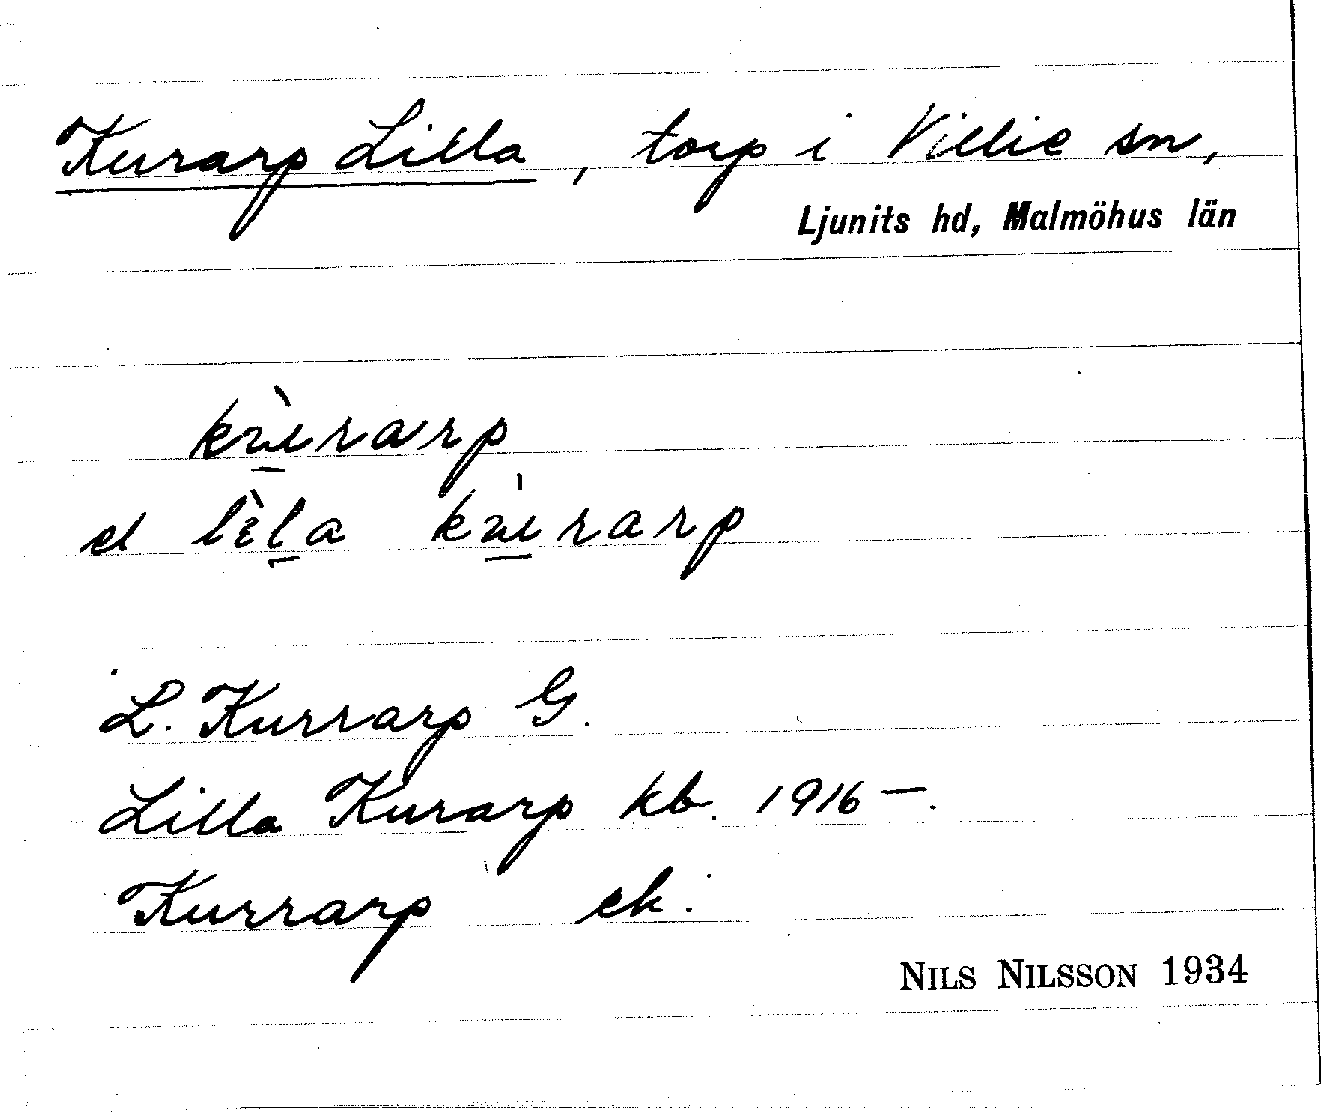 Kurarp Lilla, torp i Villie sn,
Ljunits hd, Malmöhus län
el
L. Kurrarp G.
Lilla Kurarp kb. 1916–.
Kurrarp ek.
NILS NILSSON 1934